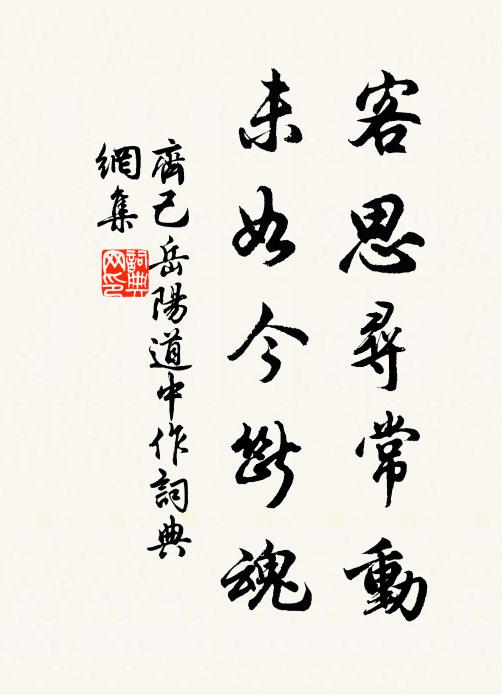 客思尋常動
未如今斷魂
齊己岳陽道中作詞典
網集
詞典
网印